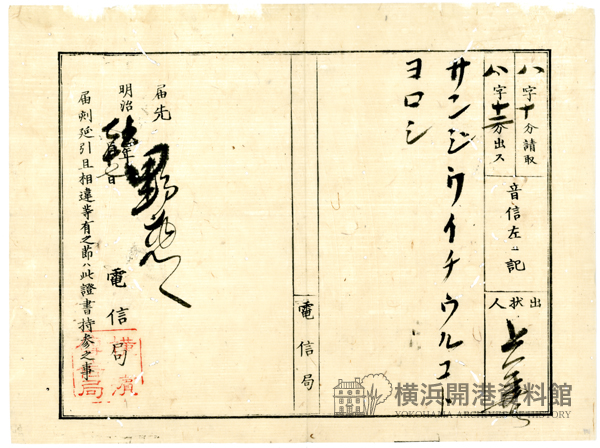 八字十分請取
八字十二分出ス
音信左ニ記
出状人
サンジウイチウルコト
ヨロシ
電信局
届先
明治
電信局
届刻延引且相違等有之節ハ此證書持参之事
横濱
局
横浜開港資料館
YOKOHAMA ARCHIVES OF HISTORY